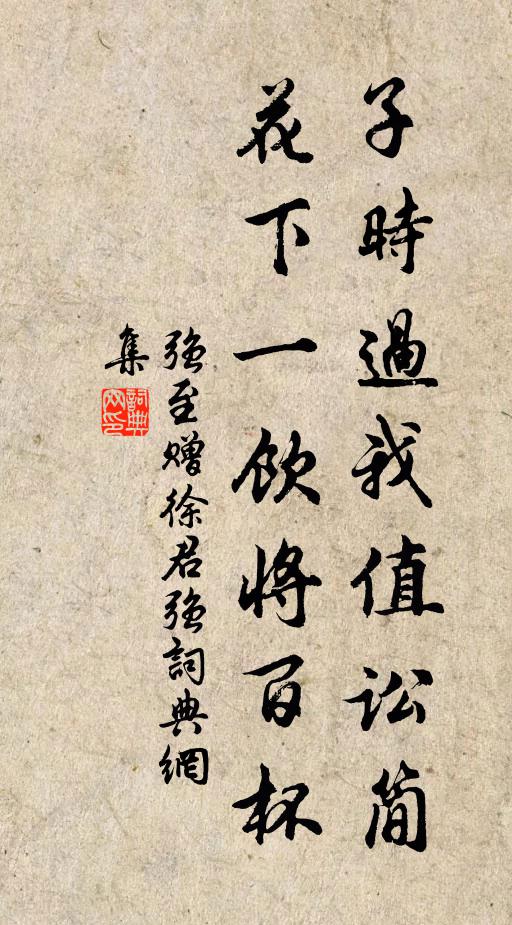 子時過我值訟简
花下一飲將百杯
强至赠徐君强詞典網
集
詞典網印